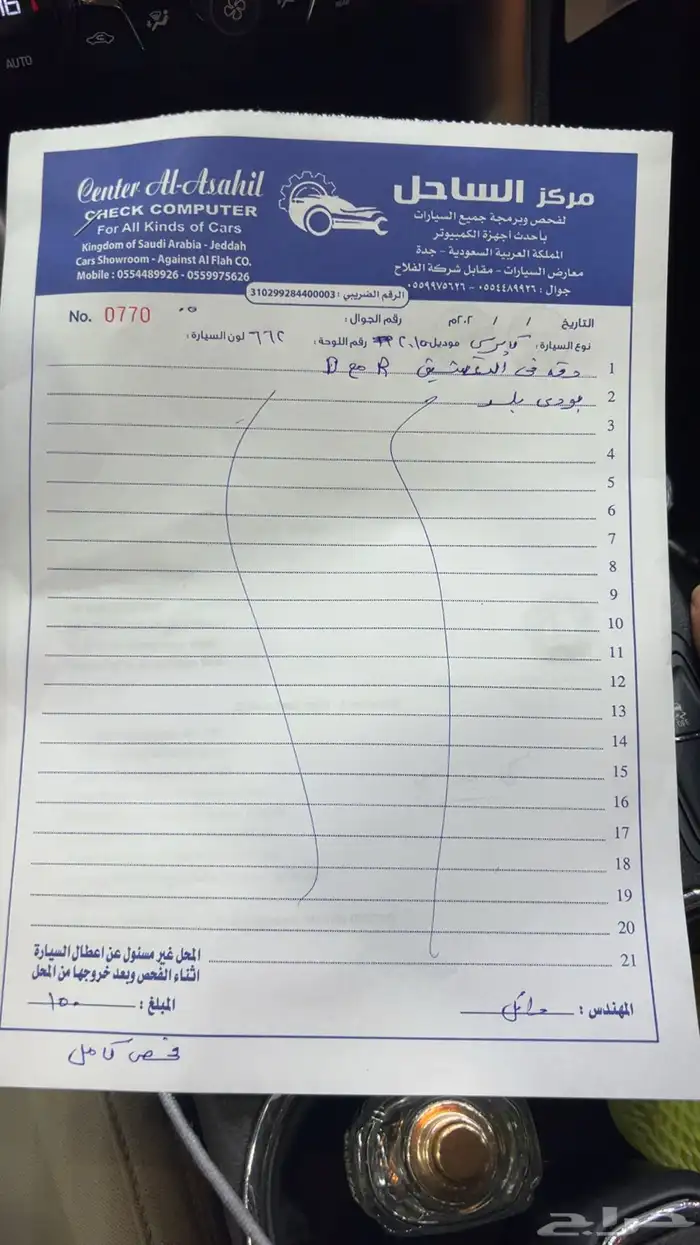 AUTO
Center Al-Asahil
CHECK COMPUTER
For All Kinds of Cars
Kingdom of Saudi Arabia - Jeddah
Cars Showroom - Against Al Flah CO.
Mobile : 0554489926 - 0559975626
مركز الساحل
لفحص وبرمجة جميع السيارات
بأحدث اجهزة الكمبيوتر
المملكة العربية السعودية - جدة
معارض السيارات - مقابل شركة الفلاح
جوال : ٠٥٥٤٤٨٩٩٢٦ - ٠٥٥٩٩٧٥٦٢٦
الرقم الضريبي : 310299284400003
No. 0770
التاريخ / / ٢٠٢م رقم الجوال :
نوع السيارة : كابرس موديل ٢٠١٥ رقم اللوحة : ٦٦٢ لون السيارة :
1 دقه في التعشيق R مع D
2 بودي بلد
3
4
5
6
7
8
9
10
11
12
13
14
15
16
17
18
19
20
21
المحل غير مسئول عن اعطال السيارة
اثناء الفحص وبعد خروجها من المحل
المهندس : وائل المبلغ : ١٥٠
فحص كامل
حراج